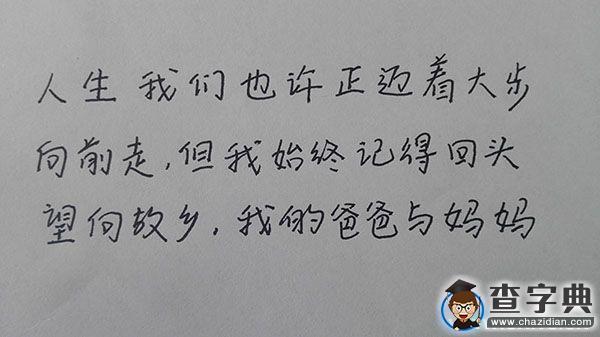 人生 我们也许正迈着大步
向前走,但我始终记得回头
望向故乡,我的爸爸与妈妈
查字典
www.chazidian.com